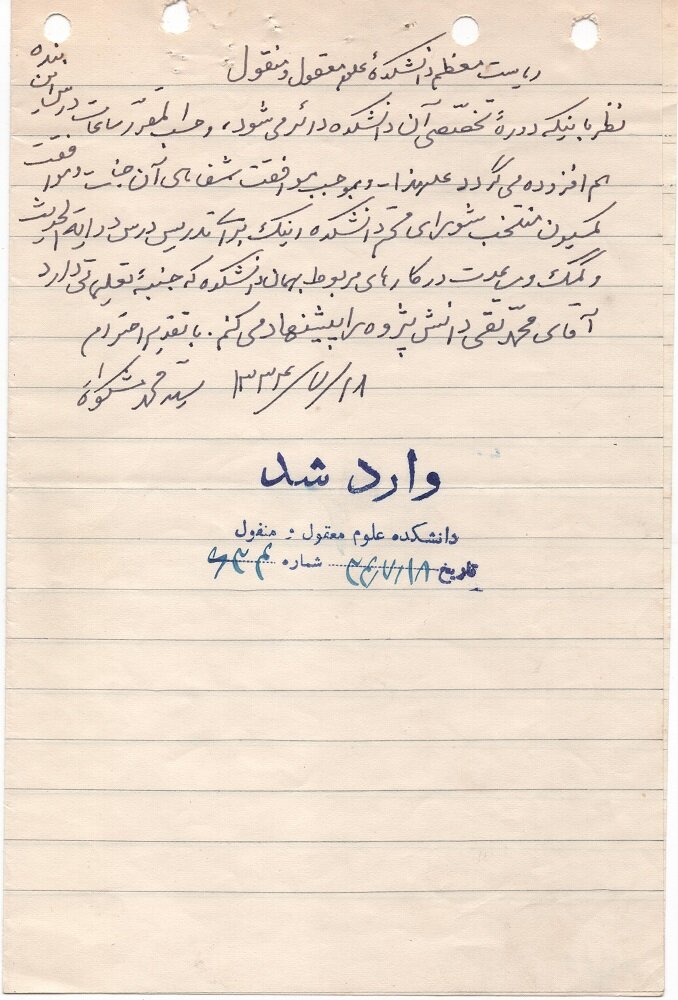 ریاست معظم دانشکدهٔ علوم معقول و منقول
نظر باینکه دورهٔ تخصّصی آن دانشکده دائر می شود، و حسب المقرّر ساعات درس این بنده
هم افزوده می گردد علیهذا و بموجب موافقت شفاهی آن جناب و موافقت
کمیسیون منتخب شورای محترم دانشکده اینک برای تدریس درس درایة الحدیث
و کمک و مساعدت در کارهای مربوط بهمان دانشکده که جنبهٔ تعلیماتی دارد
آقای محمّد تقی دانش پژوه را پیشنهاد می کنم. با تقدیم احترام
۱۳۳۴/۷/۱۸ سید محمد مشکوة
وارد شد
دانشکده علوم معقول و منقول
تاریخ ۳۴/۷/۱۸ شماره